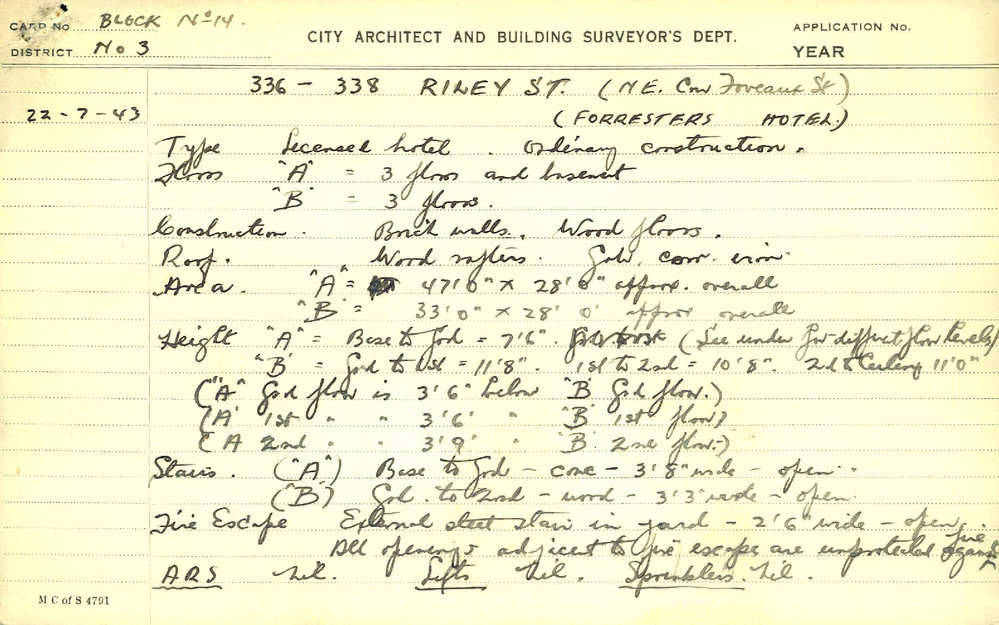 CARD No BLOCK No 14.
DISTRICT No 3
CITY ARCHITECT AND BUILDING SURVEYOR'S DEPT.
APPLICATION No.
YEAR
336 - 338 RILEY ST. (N.E. Cor Foveaux St)
22-7-43 (FORRESTERS HOTEL.)
Type Licensed hotel. Ordinary construction.
Floors "A" = 3 floors and basement
"B" = 3 floors.
Construction. Brick walls. Wood floors.
Roof. Wood rafters. Galv. corr. iron
Area. "A" = 47'0" x 28'0" approx. overall
"B" = 33'0" x 28'0' approx overall
Height "A" = Base to Grd = 7'6". (See under for diffrent floor levels)
"B" = Grd to 1st = 11'8". 1st to 2nd = 10'8". 2nd to Ceiling 11'0"
("A" Grd floor is 3'6" below "B" Grd floor.)
(A' 1st " " 3'6' " "B' 1st floor)
(A 2nd " " 3'9" " "B' 2nd floor.)
Stairs. ("A") Base to Grd - conc - 3'8" wide - open.
("B") Grd. to 2nd - wood - 3'3" wide - open.
Fire Escape External steel stair in yard - 2'6" wide - open.
All openings adjicent to fire escape are unprotected against fire
ARS Nil. Lifts Nil. Sprinklers. Nil.
M C of S 4791